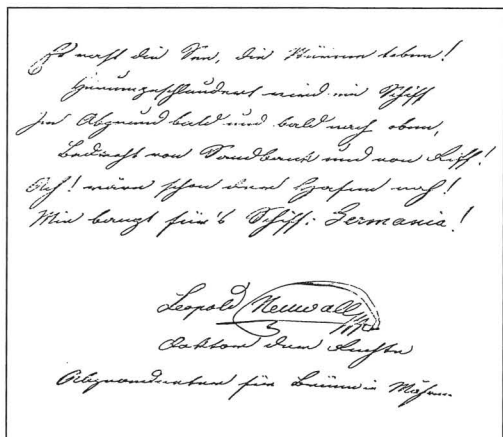 Es rast die See, die Stürme toben!
Herumgeschleudert wird ein Schiff
In Abgrund bald und bald nach oben,
Bedroht von Sandbank und von Riff!
Ach! wäre schon dem Hafen nah!
Mir bangt für's Schiff: Germania!
Leopold Neuwall
Doktor der Rechte
Abgeordneter für Brünn in Mähren